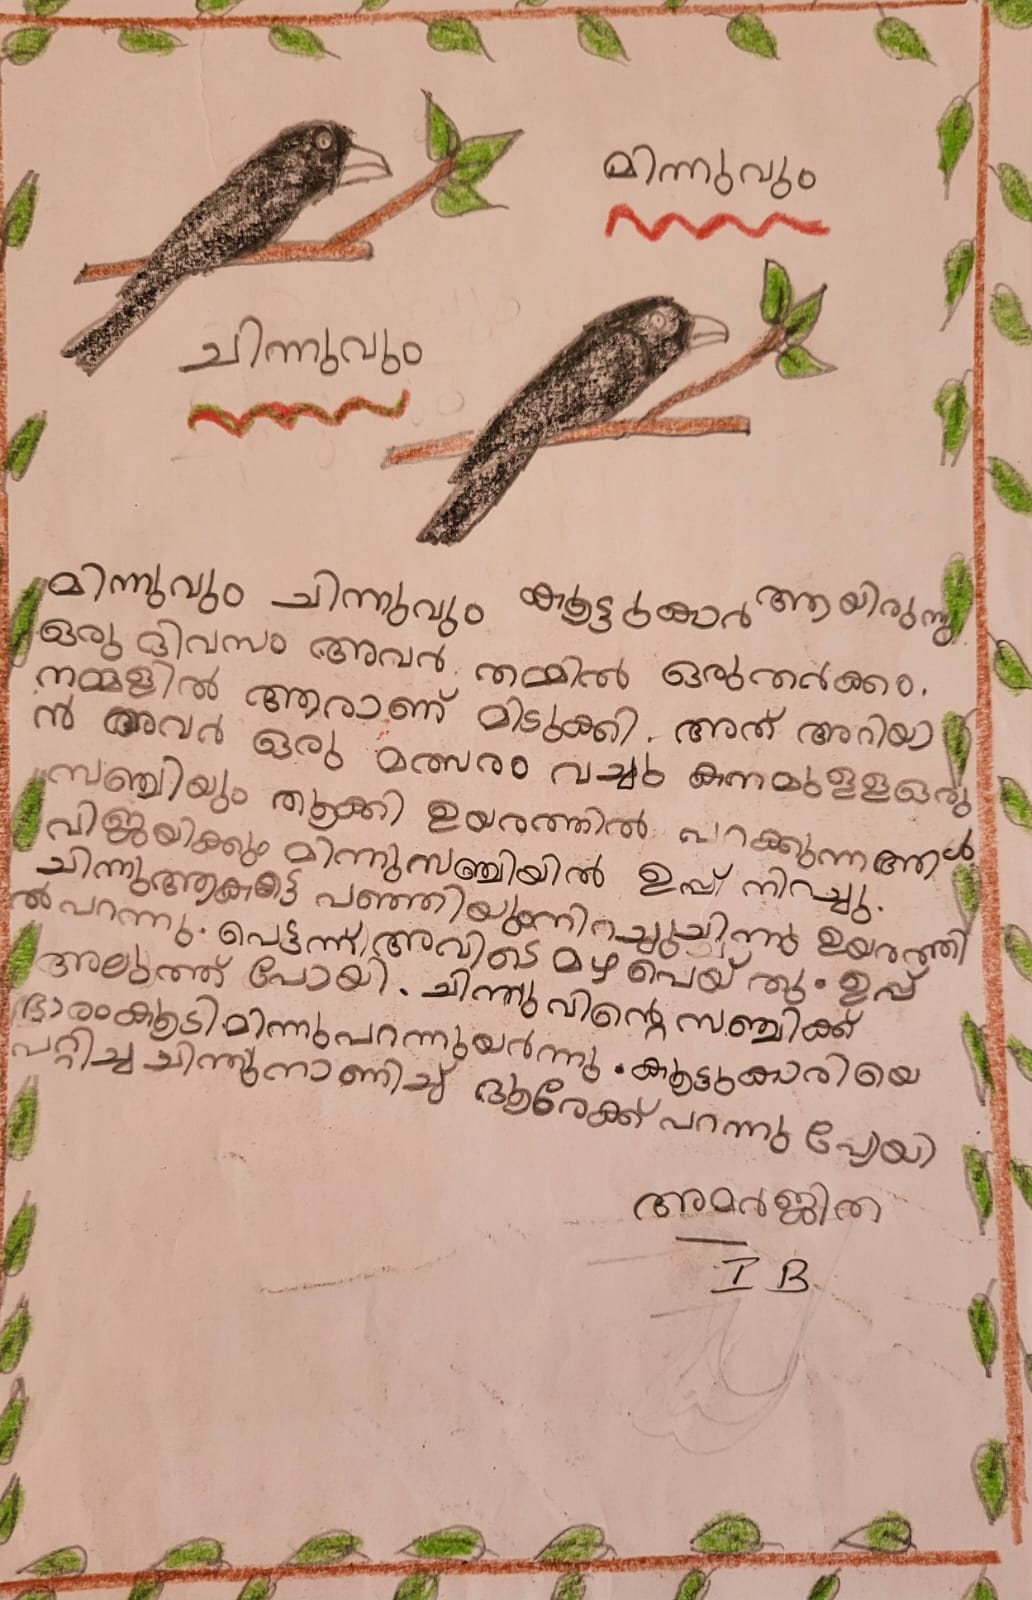 മിന്നുവും
ചിന്നുവും
മിന്നുവും ചിന്നുവും കൂട്ടുകാർ ആയിരുന്നു
ഒരു ദിവസം അവർ തമ്മിൽ ഒരുതർക്കം.
നമ്മളിൽ ആരാണ് മിടുക്കി. അത് അറിയാ
ൻ അവർ ഒരു മത്സരം വച്ചു കനമുള്ളഒരു
സഞ്ചിയും തൂക്കി ഉയരത്തിൽ പറക്കുന്നആൾ
വിജയിക്കും മിന്നുസഞ്ചിയിൽ ഉപ്പ് നിറച്ചു.
ചിന്നുആകട്ടെ പഞ്ഞിയുംനിറച്ചുചിന്നു ഉയരത്തി
ൽപറന്നു. പെട്ടന്ന് അവിടെ മഴ പെയ്തു. ഉപ്പ്
അലുത്ത് പോയി. ചിന്നുവിന്റെ സഞ്ചിക്ക്
ഭാരംകൂടി.മിന്നുപറന്നുയർന്നു. കൂട്ടുകാരിയെ
പറ്റിച്ച ചിന്നുനാണിച്ച് ദൂരേക്ക് പറന്നു പോയി
അമർജിത
I B